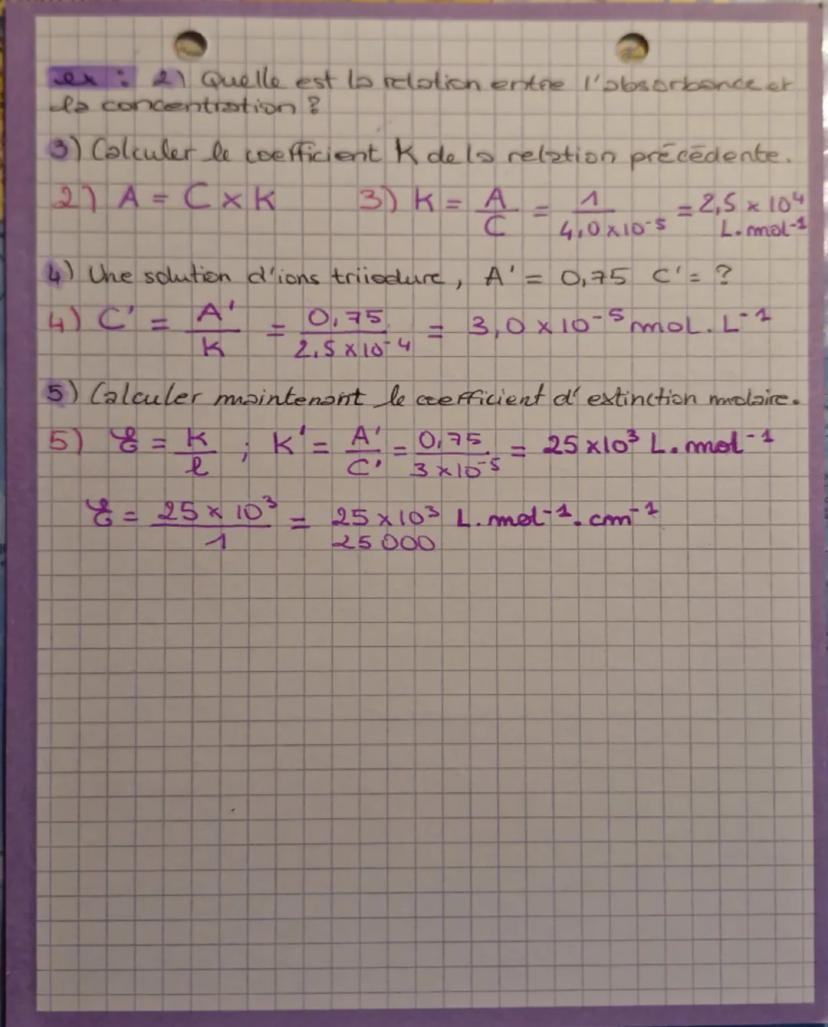 ex : 2) Quelle est la relation entre l'absorbance et
la concentration ?
3) Calculer le coefficient K de la relation précédente.
2) A = C x K 3) K = A/C = 1/4,0x10⁻⁵ = 2,5 x 10⁴ L.mol⁻¹
4) Une solution d'ions triiodure, A' = 0,75 C' = ?
4) C' = A'/K = 0,75/2,5x10⁻⁴ = 3,0 x 10⁻⁵ moL.L⁻¹
5) Calculer maintenant le coefficient d'extinction molaire.
5) Ɛ = K/l ; K' = A'/C' = 0,75/3x10⁻⁵ = 25x10³ L.mol⁻¹
Ɛ = 25 x 10³/1 = 25x10³ L.mol⁻¹.cm⁻¹
25 000